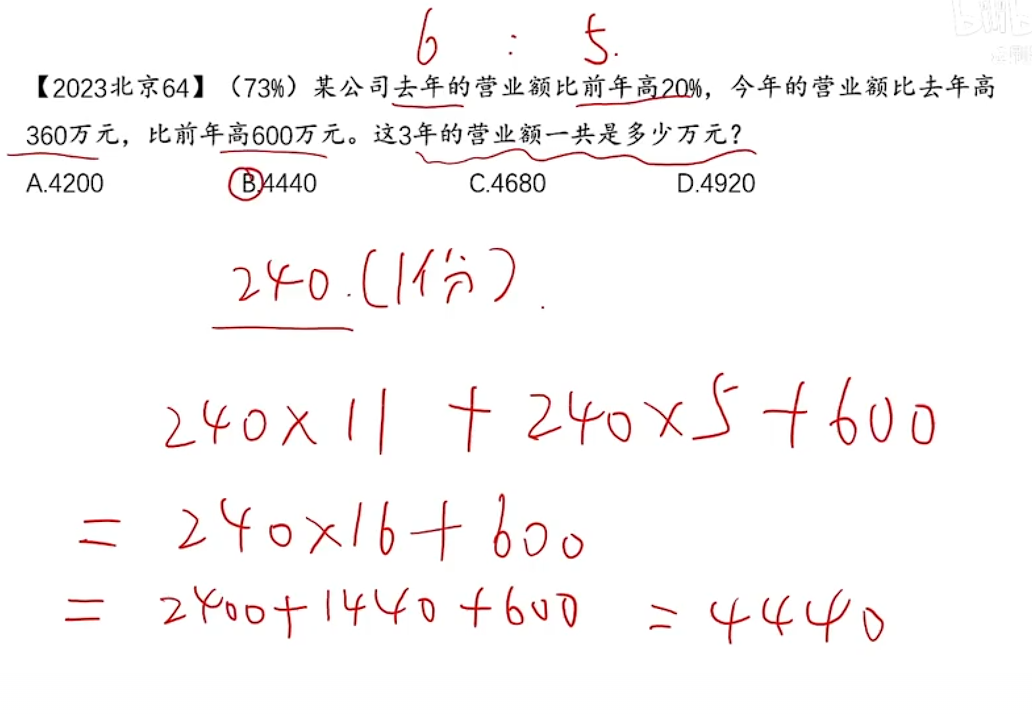 6 : 5.
【2023北京64】（73%）某公司去年的营业额比前年高20%，今年的营业额比去年高
360万元，比前年高600万元。这3年的营业额一共是多少万元？
A.4200 B.4440 C.4680 D.4920
240.(1份).
240×11 + 240×5+600
= 240×16+600
= 2400+1440+600 = 4440